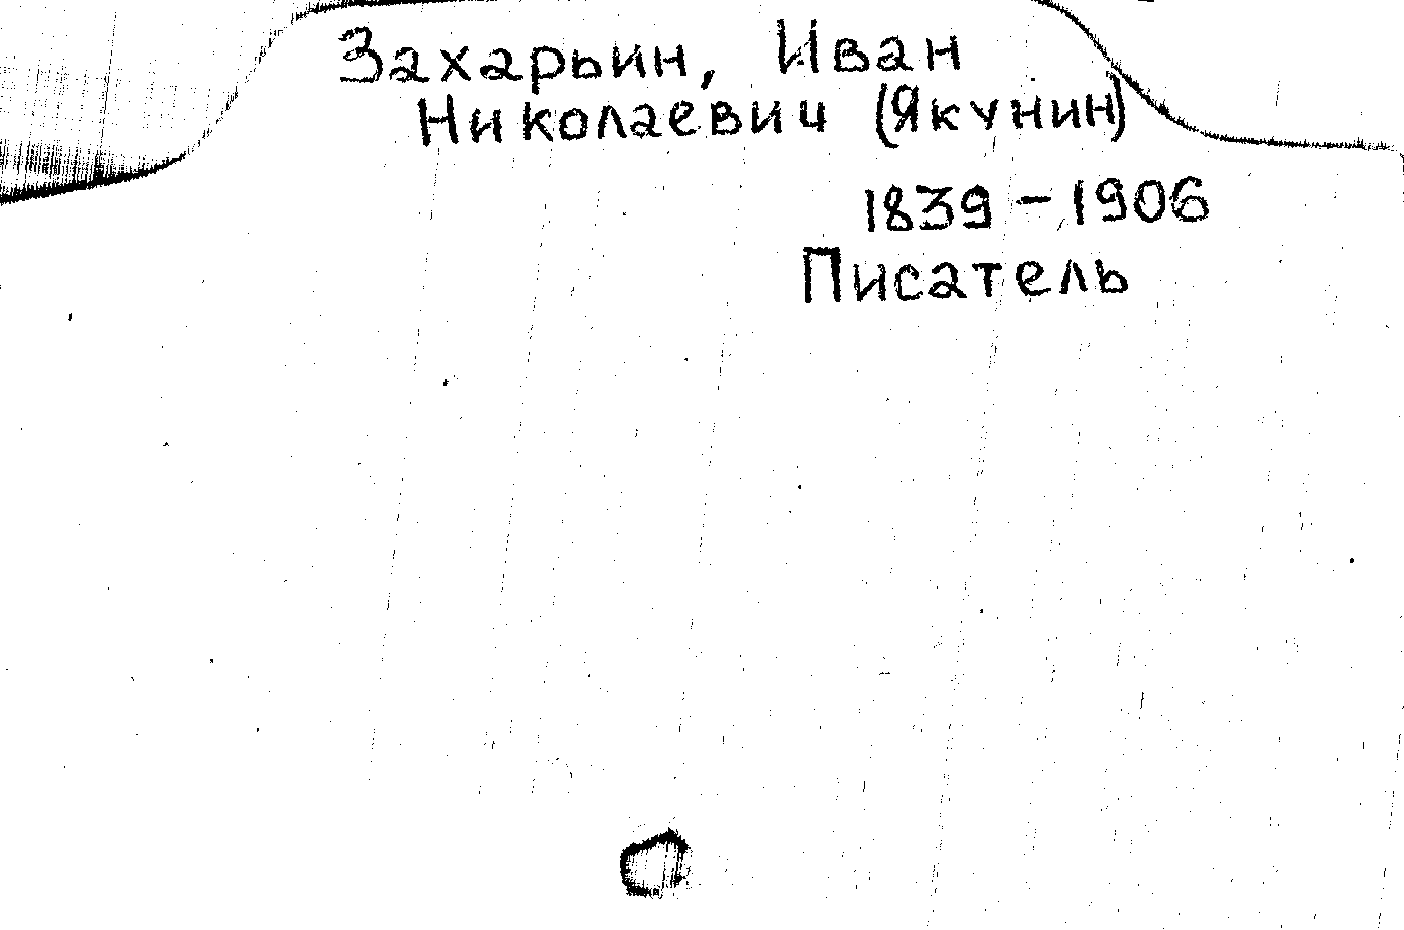 Захарьин, Иван
Николаевич (Якунин)
1839 - 1906
Писатель